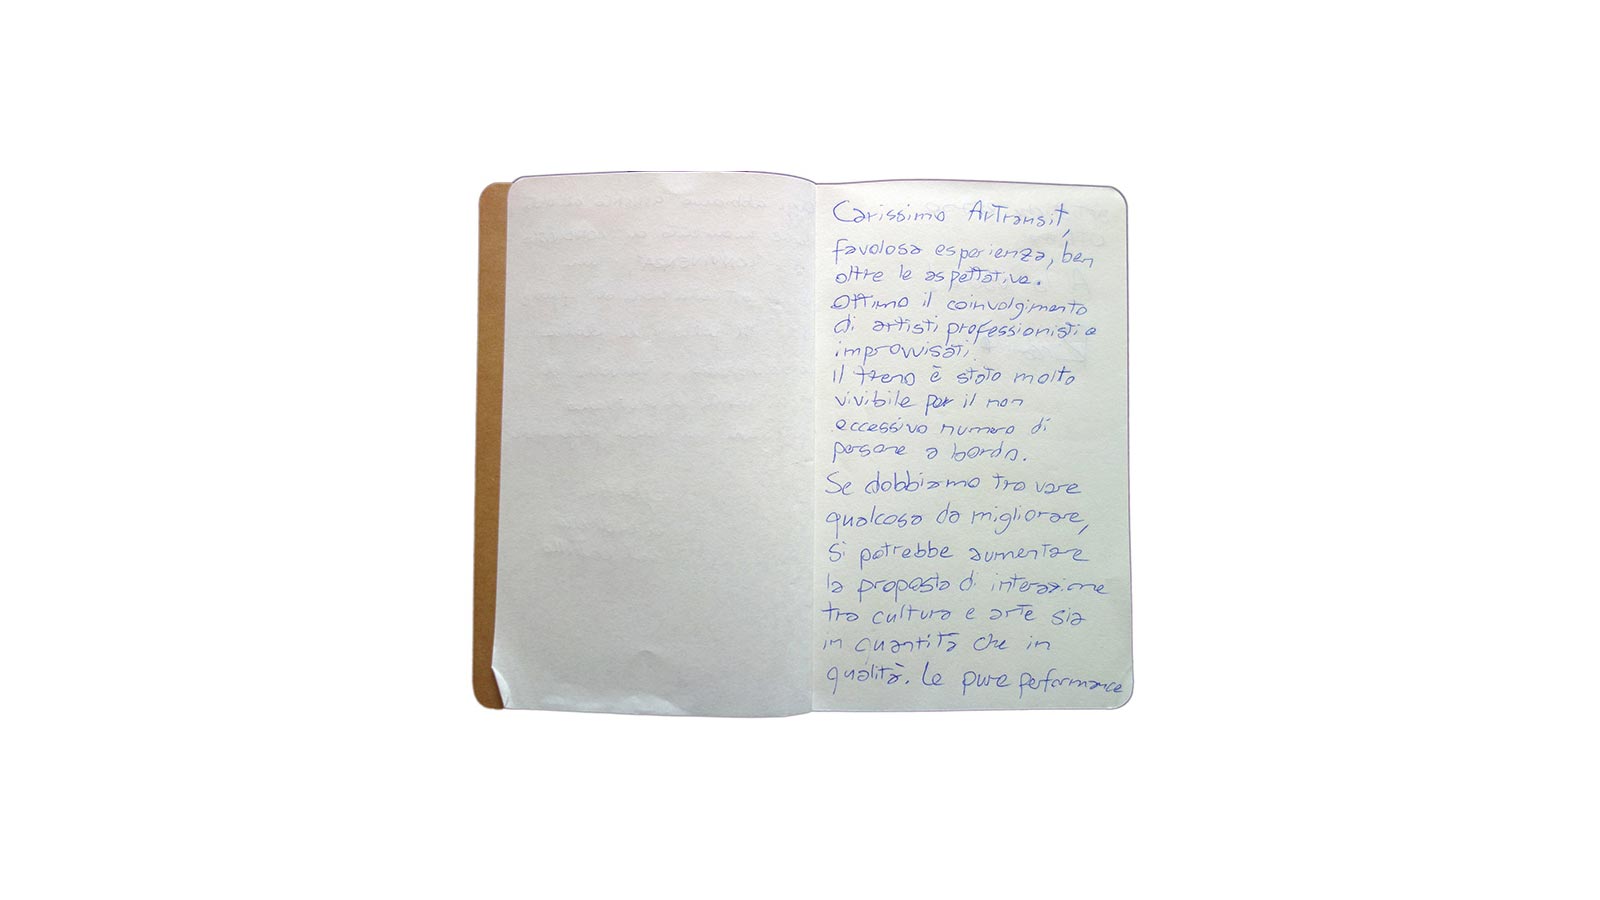 Carissimo ArTransit,
favolosa esperienza, ben
oltre le aspettative.
Ottimo il coinvolgimento
di artisti professionisti e
improvvisati.
il treno è stato molto
vivibile per il non
eccessivo numero di
persone a bordo.
Se dobbiamo trovare
qualcosa da migliorare,
si potrebbe aumentare
la proposta di interazione
tra cultura e arte sia
in quantità che in
qualità. Le pure performance